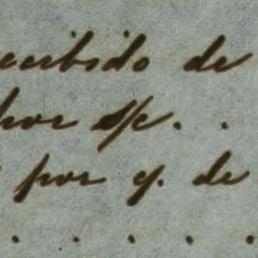 ecibido de
por s/c. .
por q. de
. . . . .